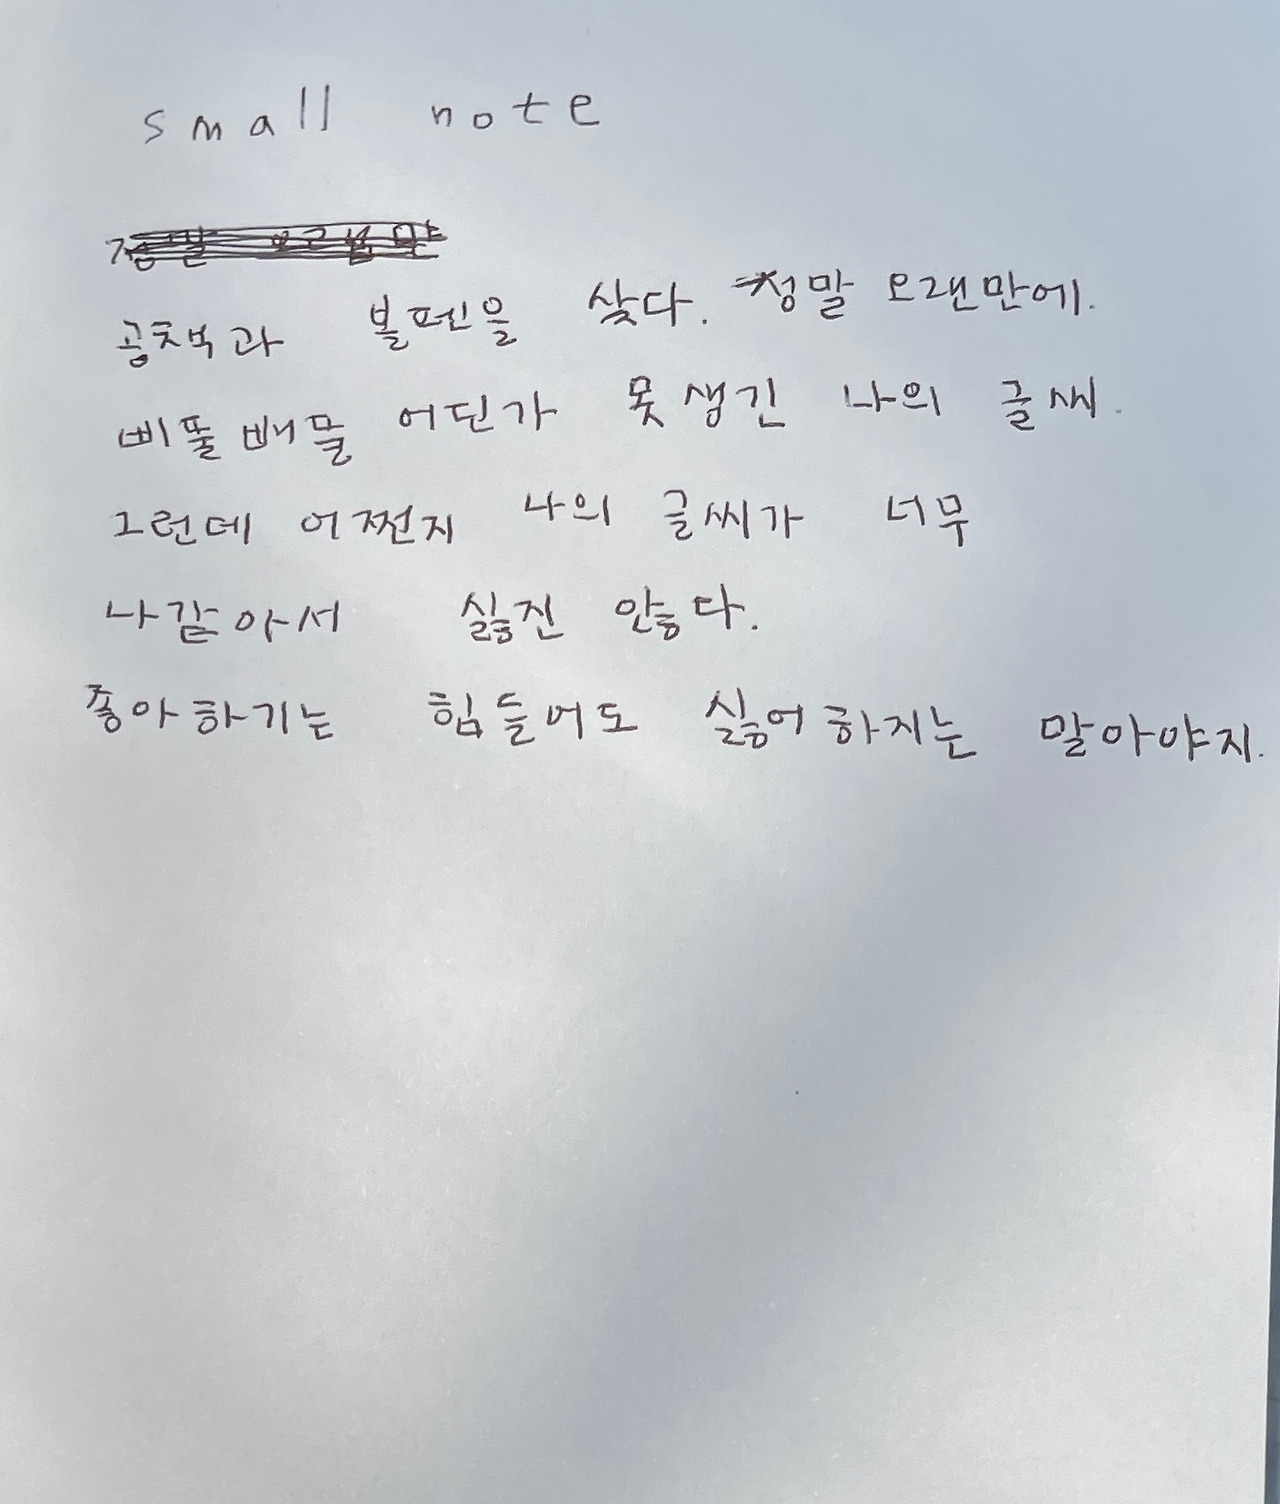 small note
공책과 볼펜을 샀다. 정말 오랜만에.
삐뚤빼뚤 어딘가 못생긴 나의 글씨.
그런데 어쩐지 나의 글씨가 너무
나같아서 싫진 않다.
좋아하기는 힘들어도 싫어하지는 말아야지.